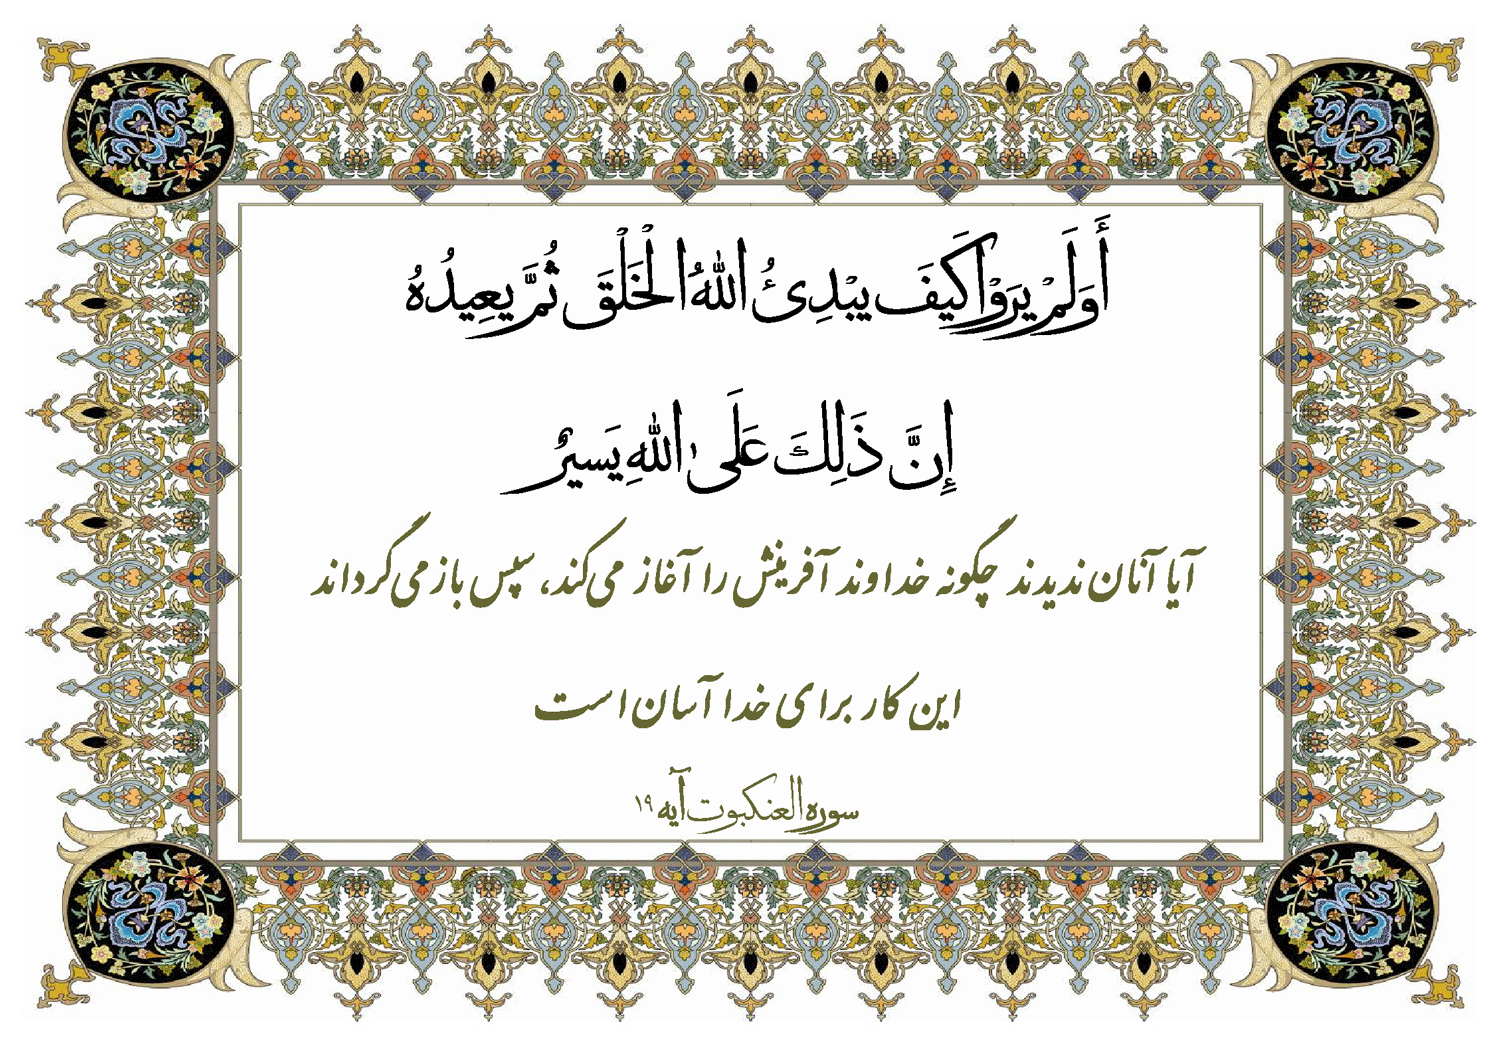 أَوَلَمْ يَرَوْا كَيفَ يبْدِئُ اللهُ الْخَلْقَ ثُمَّ يعِيدُهُ
إِنَّ ذَلِكَ عَلَى اللهِ يَسيرٌ
آیا آنان ندیدند چگونه خداوند آفرینش را آغاز می‌کند، سپس بازمی‌گرداند
این کار برای خدا آسان است
سوره العنکبوت آیه ۱۹